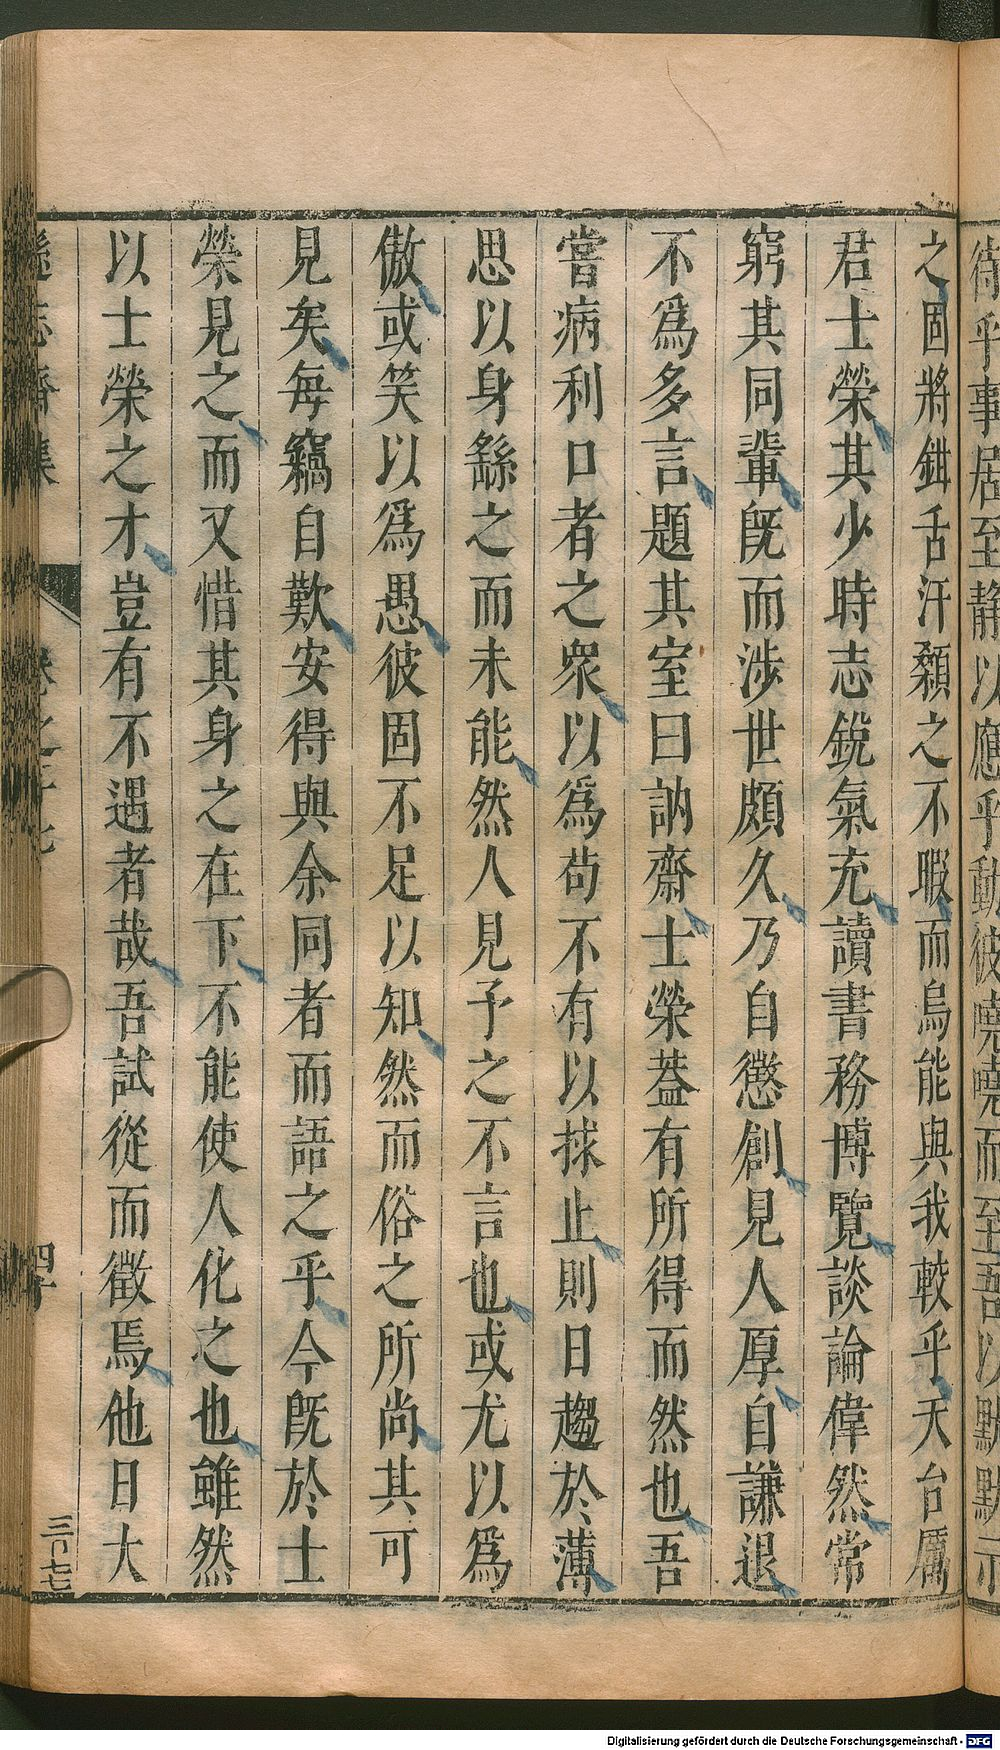 待乎事居至静以應乎動彼嘵嘵而至吾以默默示
之固將鉗舌汗顙之不暇而烏能與我較乎天台厲
君士榮其少時志銳氣充讀書務博覽談論偉然常
窮其同輩既而涉世頗久乃自懲創見人厚自謙退
不爲多言題其室曰訥齋士榮葢有所得而然也吾
嘗病利口者之衆以爲苟不有以捄止則日趨於薄
思以身繇之而未能然人見予之不言也或尤以爲
傲或笑以爲愚彼固不足以知然而俗之所尚其可
見矣每竊自歎安得與余同者而語之乎今既於士
榮見之而又惜其身之在下不能使人化之也雖然
以士榮之才豈有不遇者哉吾試從而徵焉他日大
遜志齋集
卷之十七
四十
三百七七
Digitalisierung gefördert durch die Deutsche Forschungsgemeinschaft - DFG